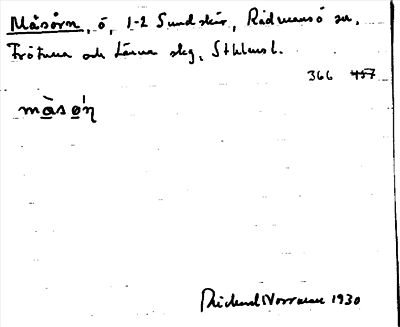 Måsörn, ö, 1-2 Sundskär, Rådmansö sn,
Frötuna och Länna skg, Sthlms l.
366 457
Rickard Norrman 1930